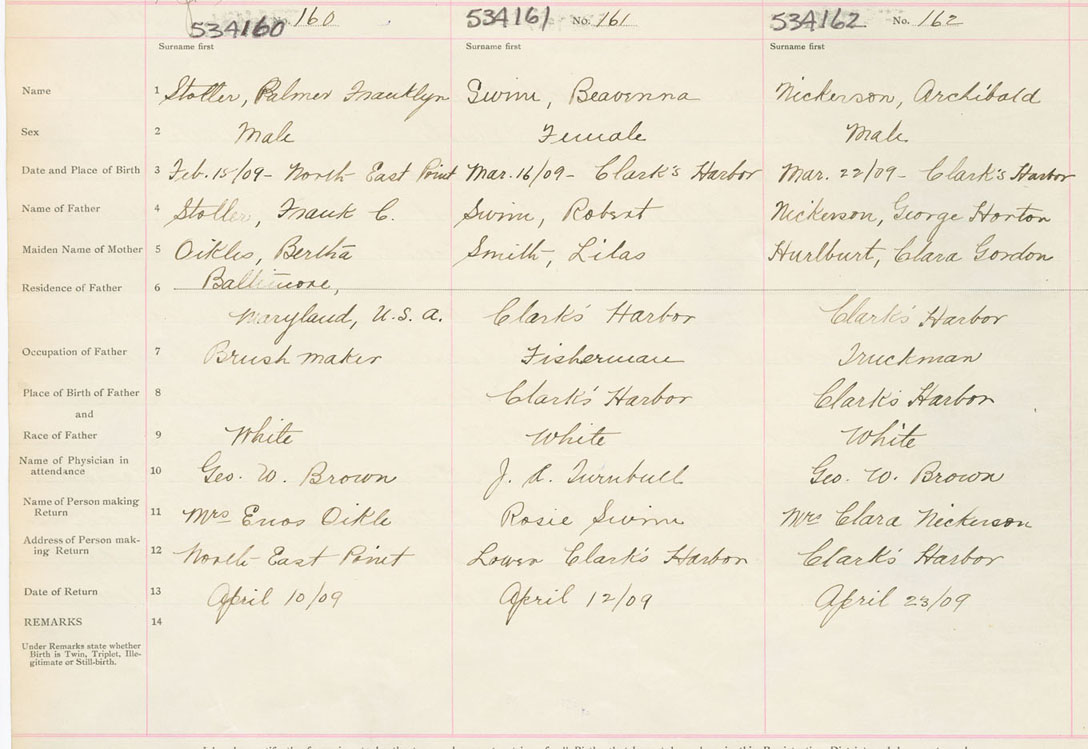 534160 No. 160 534161 No. 161 534162 No. 162
Surname first Surname first Surname first
Name 1 Stoller, Palmer Franklyn Swim, Beavenna Nickerson, Archibald
Sex 2 Male Female Male
Date and Place of Birth 3 Feb. 15/09- North East Point Mar. 16/09- Clark's Harbor Mar. 22/09- Clark's Harbor
Name of Father 4 Stoller, Frank C. Swim, Robert Nickerson, George Horton
Maiden Name of Mother 5 Oikles, Bertha Smith, Lilas Hurlburt, Clara Gordon
Residence of Father 6 Baltimore,
Maryland, U.S.A. Clark's Harbor Clark's Harbor
Occupation of Father 7 Brush maker Fisherman Truckman
Place of Birth of Father 8 Clark's Harbor Clark's Harbor
and
Race of Father 9 White White White
Name of Physician in
attendance 10 Geo. W. Brown J. A. Turnbull Geo. W. Brown
Name of Person making
Return 11 Mrs Enos Oikle Rosie Swim Mrs Clara Nickerson
Address of Person mak-
ing Return 12 North East Point Lower Clark's Harbor Clark's Harbor
Date of Return 13 April 10/09 April 12/09 April 23/09
REMARKS 14
Under Remarks state whether
Birth is Twin, Triplet, Ille-
gitimate or Still-birth.